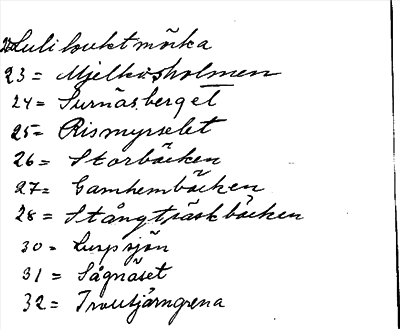 22 Lulibuktmörka
23 = Mjelkusholmen
24 = Surnäsberget
25 = Rismyrselet
26 = Storbäcken
27 = Gamhembäcken
28 = Stångträskbäcken
30 = Lurpsjön
31 = Sågnäset
32 =